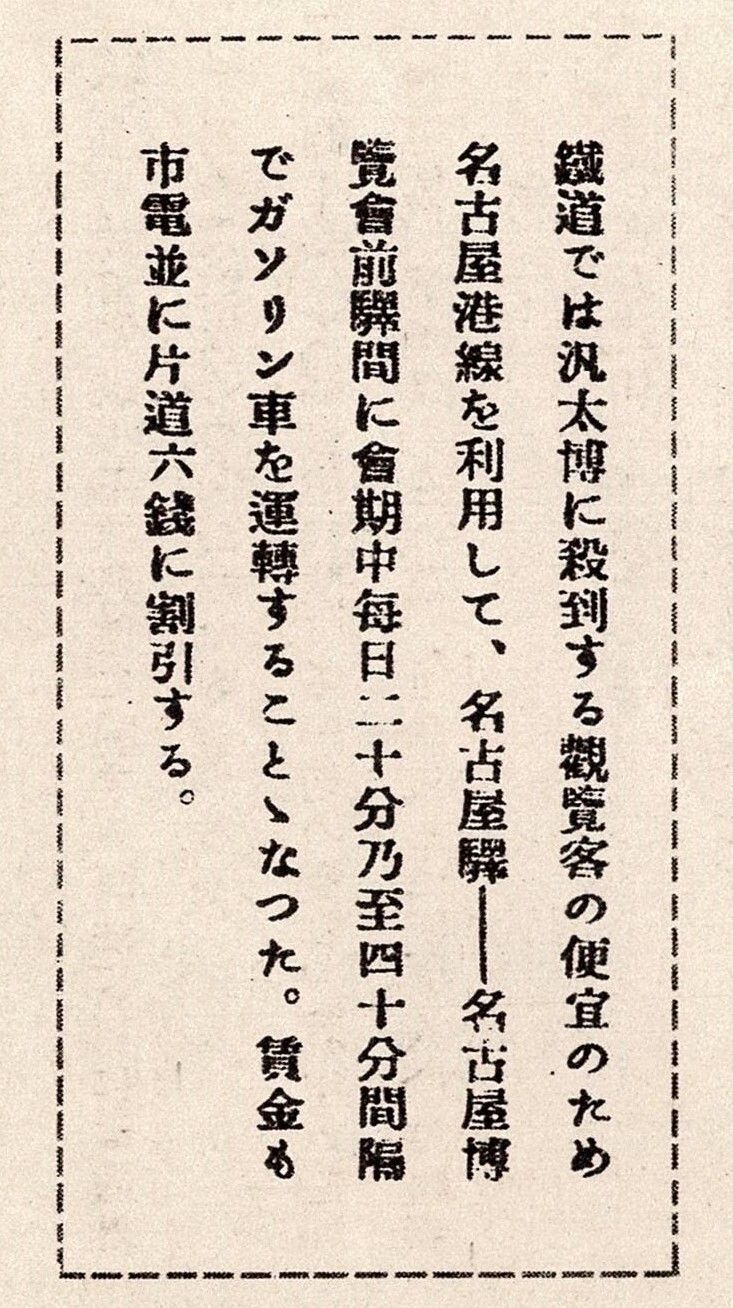 鐵道では汎太博に殺到する觀覽客の便宜のため
名古屋港線を利用して、名古屋驛――名古屋博
覽會前驛間に會期中每日二十分乃至四十分間隔
でガソリン車を運轉することゝなつた。賃金も
市電並に片道六錢に割引する。